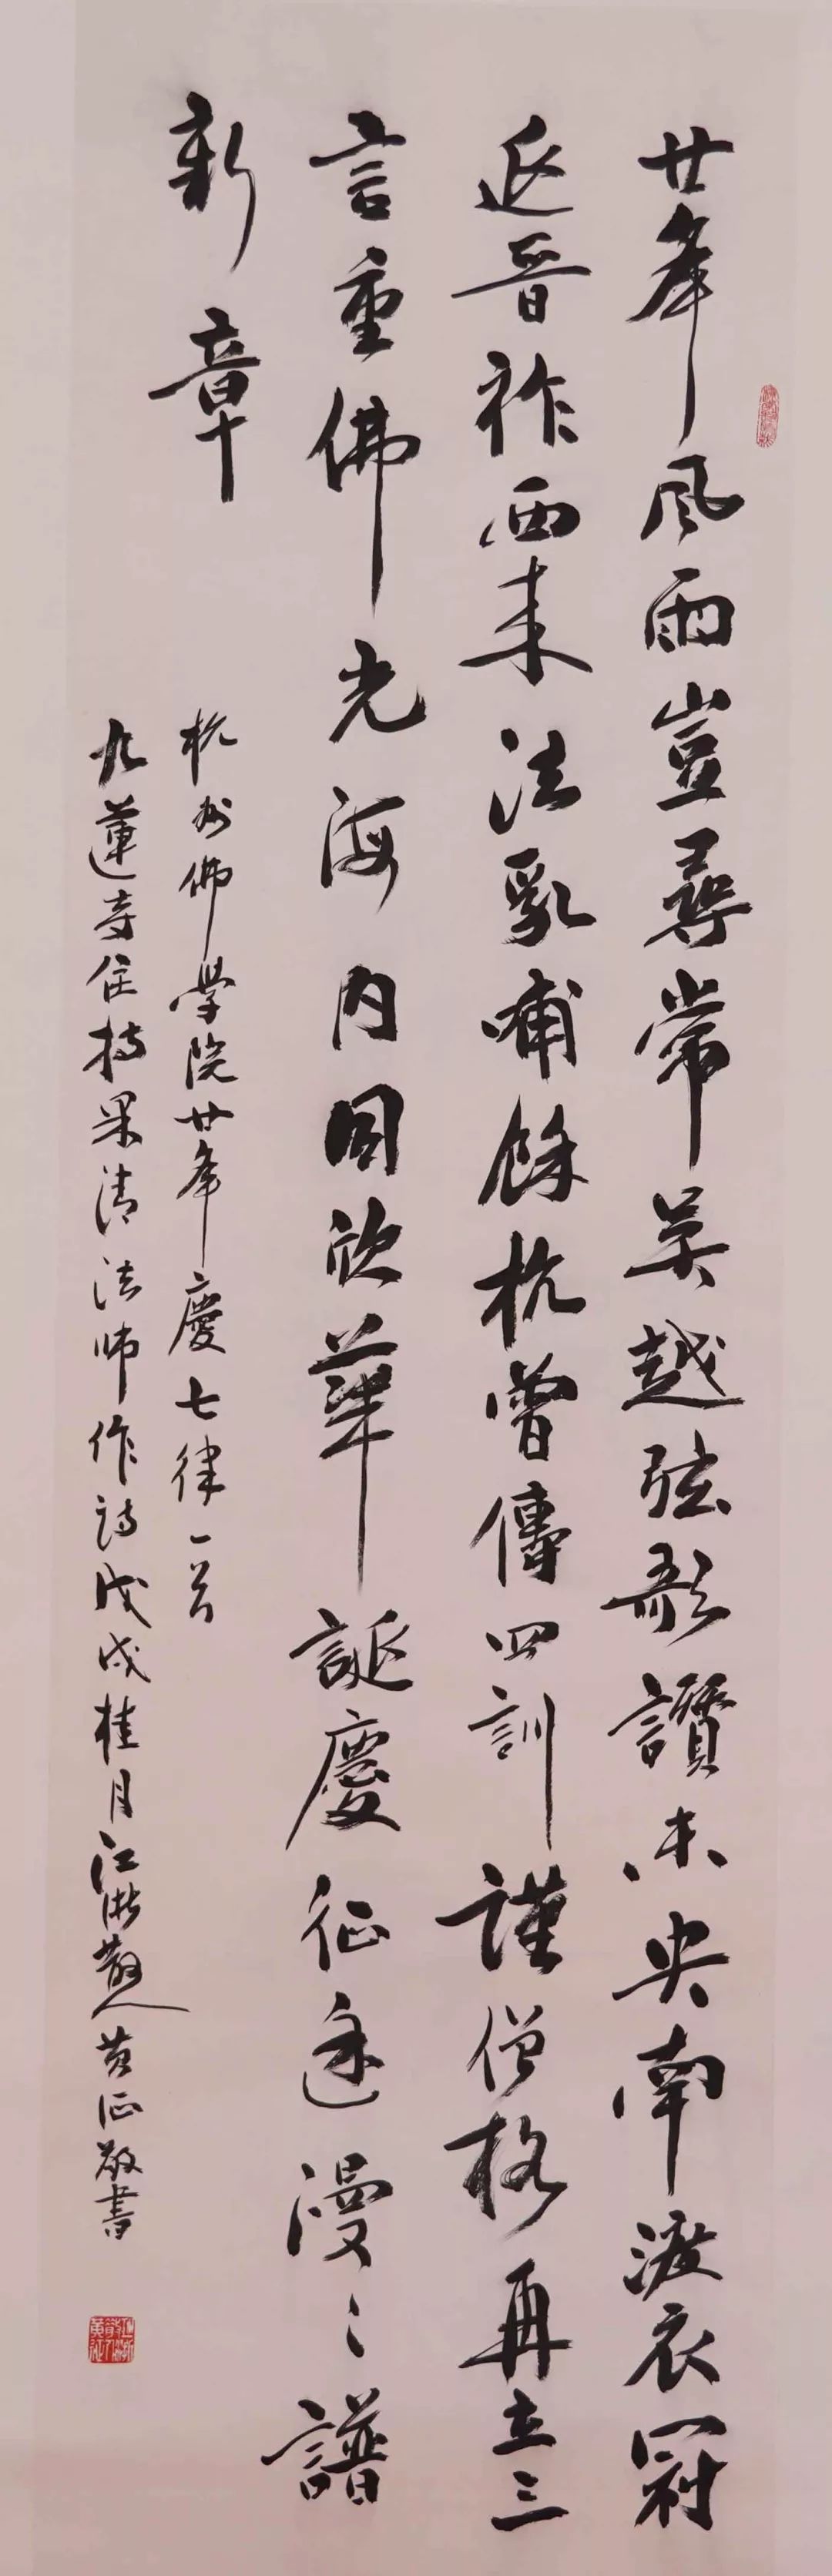 廿年風雨豈尋常吴越弦歌讚未央南渡衣冠
延晉祚西来法乳哺餘杭曾傳四訓謹僧格再立三
言重佛光海内同欣華誕慶征途漫〻譜
新章
杭州佛學院廿年慶七律一首
九蓮寺住持果清法師作詩戊戌桂月江浙散人黄征敬書